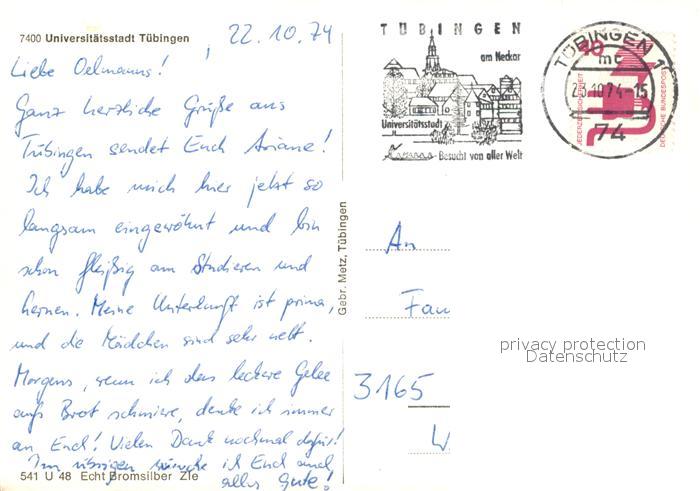 7400 Universitätsstadt Tübingen
22.10.74
Liebe Oelmanns!
Ganz herzliche Grüße aus
Tübingen sendet Euch Ariane!
Ich habe mich hier jetzt so
langsam eingewöhnt und bin
schon fleißig am Studieren und
Lernen. Meine Unterkunft ist prima,
und die Mädchen sind sehr nett.
Morgens, wenn ich das leckere Gelee
aufs Brot schmiere, denke ich immer
an Euch! Vielen Dank nochmal dafür!
Im übrigen wünsche ich Euch
alles Gute!
541 U 48 Echt Bromsilber Zie
Gebr. Metz, Tübingen
TÜBINGEN
am Neckar
Universitätsstadt
Besucht von aller Welt
TÜBINGEN 1
mc
23.10.74-15
74
JEDERZEIT SICHERHEIT
DEUTSCHE BUNDESPOST
An
Fam
3165
privacy protection
Datenschutz